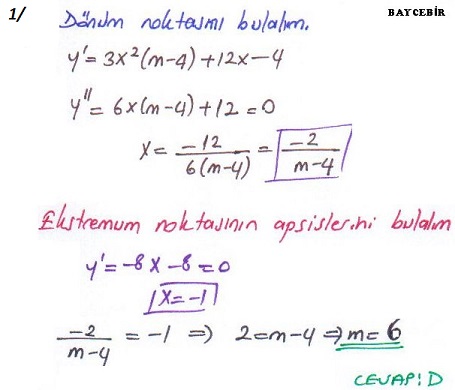 1/ BAYCEBİR
Dönüm noktasını bulalım.
y' = 3x²(m-4)+12x-4
y'' = 6x(m-4)+12 = 0
x = -12/6(m-4) = -2/m-4
Ekstremum noktasının apsislerini bulalım
y' = -8x-8 = 0
x = -1
-2/m-4 = -1 ⇒ 2 = m-4 ⇒ m = 6
CEVAP: D